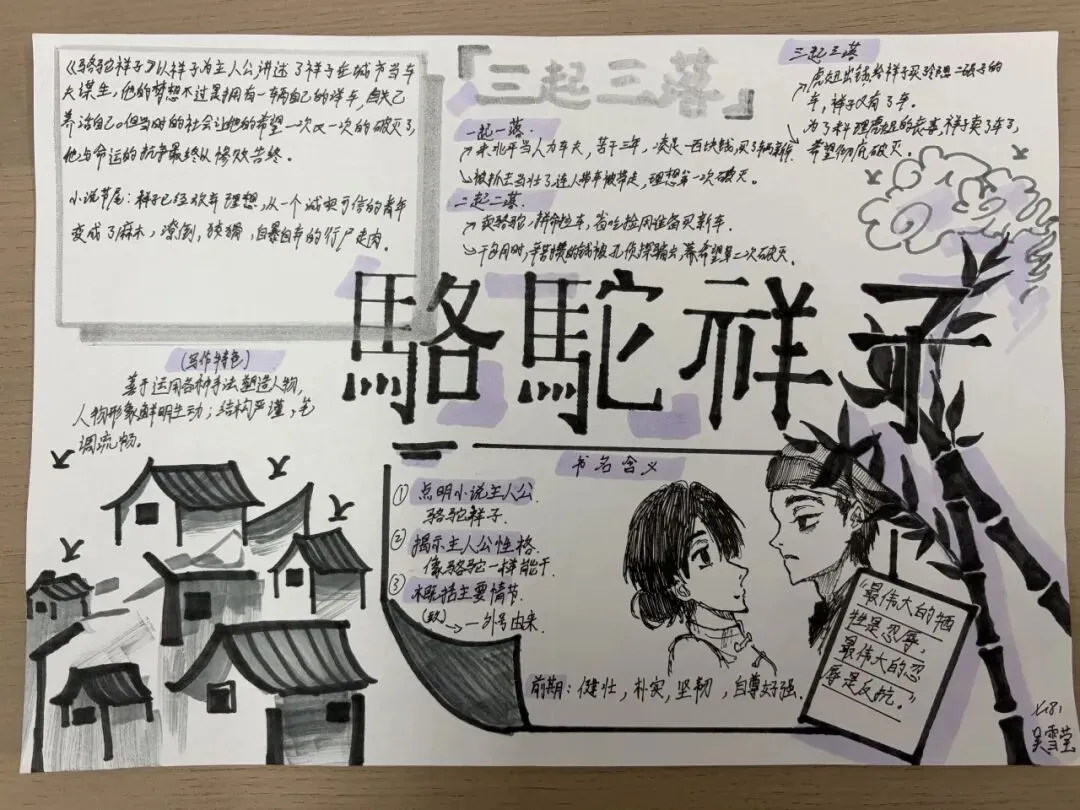 《骆驼祥子》以祥子为主人公,讲述了祥子在城市当车
夫谋生,他的梦想不过是拥有一辆自己的洋车,自失己
养活自己。但当时的社会让他的希望一次又一次的破灭了,
他与命运的抗争最终以惨败告终。
小说节尾:祥子已经放弃理想,从一个诚实可信的青年
变成了麻木,潦倒,狡猾,自暴自弃的行尸走肉。
「三起三落」
一起一落.
来北平当人力车夫,苦干三年,凑足一百块钱,买了辆新车
被抓去当壮丁,连人带车被带走,理想第一次破灭。
二起二落.
卖骆驼,拼命拉车,省吃捡用准备买新车.
干包月时,辛苦攒的钱被孔侦探骗去,希望第二次破灭.
三起三落
虎妞出钱给祥子买邻理二强子的
车,祥子又有了车。
为了料理虎妞的丧事,祥子卖了车了,
希望彻底破灭.
駱駝祥子
(写作特色)
善于运用各种手法塑造人物,
人物形象鲜明生动;结构严谨,笔
调流畅。
书名含义
① 点明小说主人公.
骆驼祥子.
② 揭示主人公性格.
像骆驼一样能干.
③ 概括主要情节.
→一外号由来.
前期:健壮,朴实,坚韧,自尊好强.
"最伟大的牺
牲是忍辱,
最伟大的忍
辱是反抗。"
吴雪莹